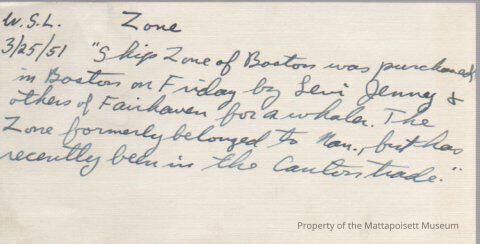 W.S.L. Zone
3/25/51 "Ship Zone of Boston was purchased
in Boston on Friday by Levi Jenney &
others of Fairhaven for a whaler. The
Zone formerly belonged to Nan., but has
recently been in the Canton trade."
Property of the Mattapoisett Museum